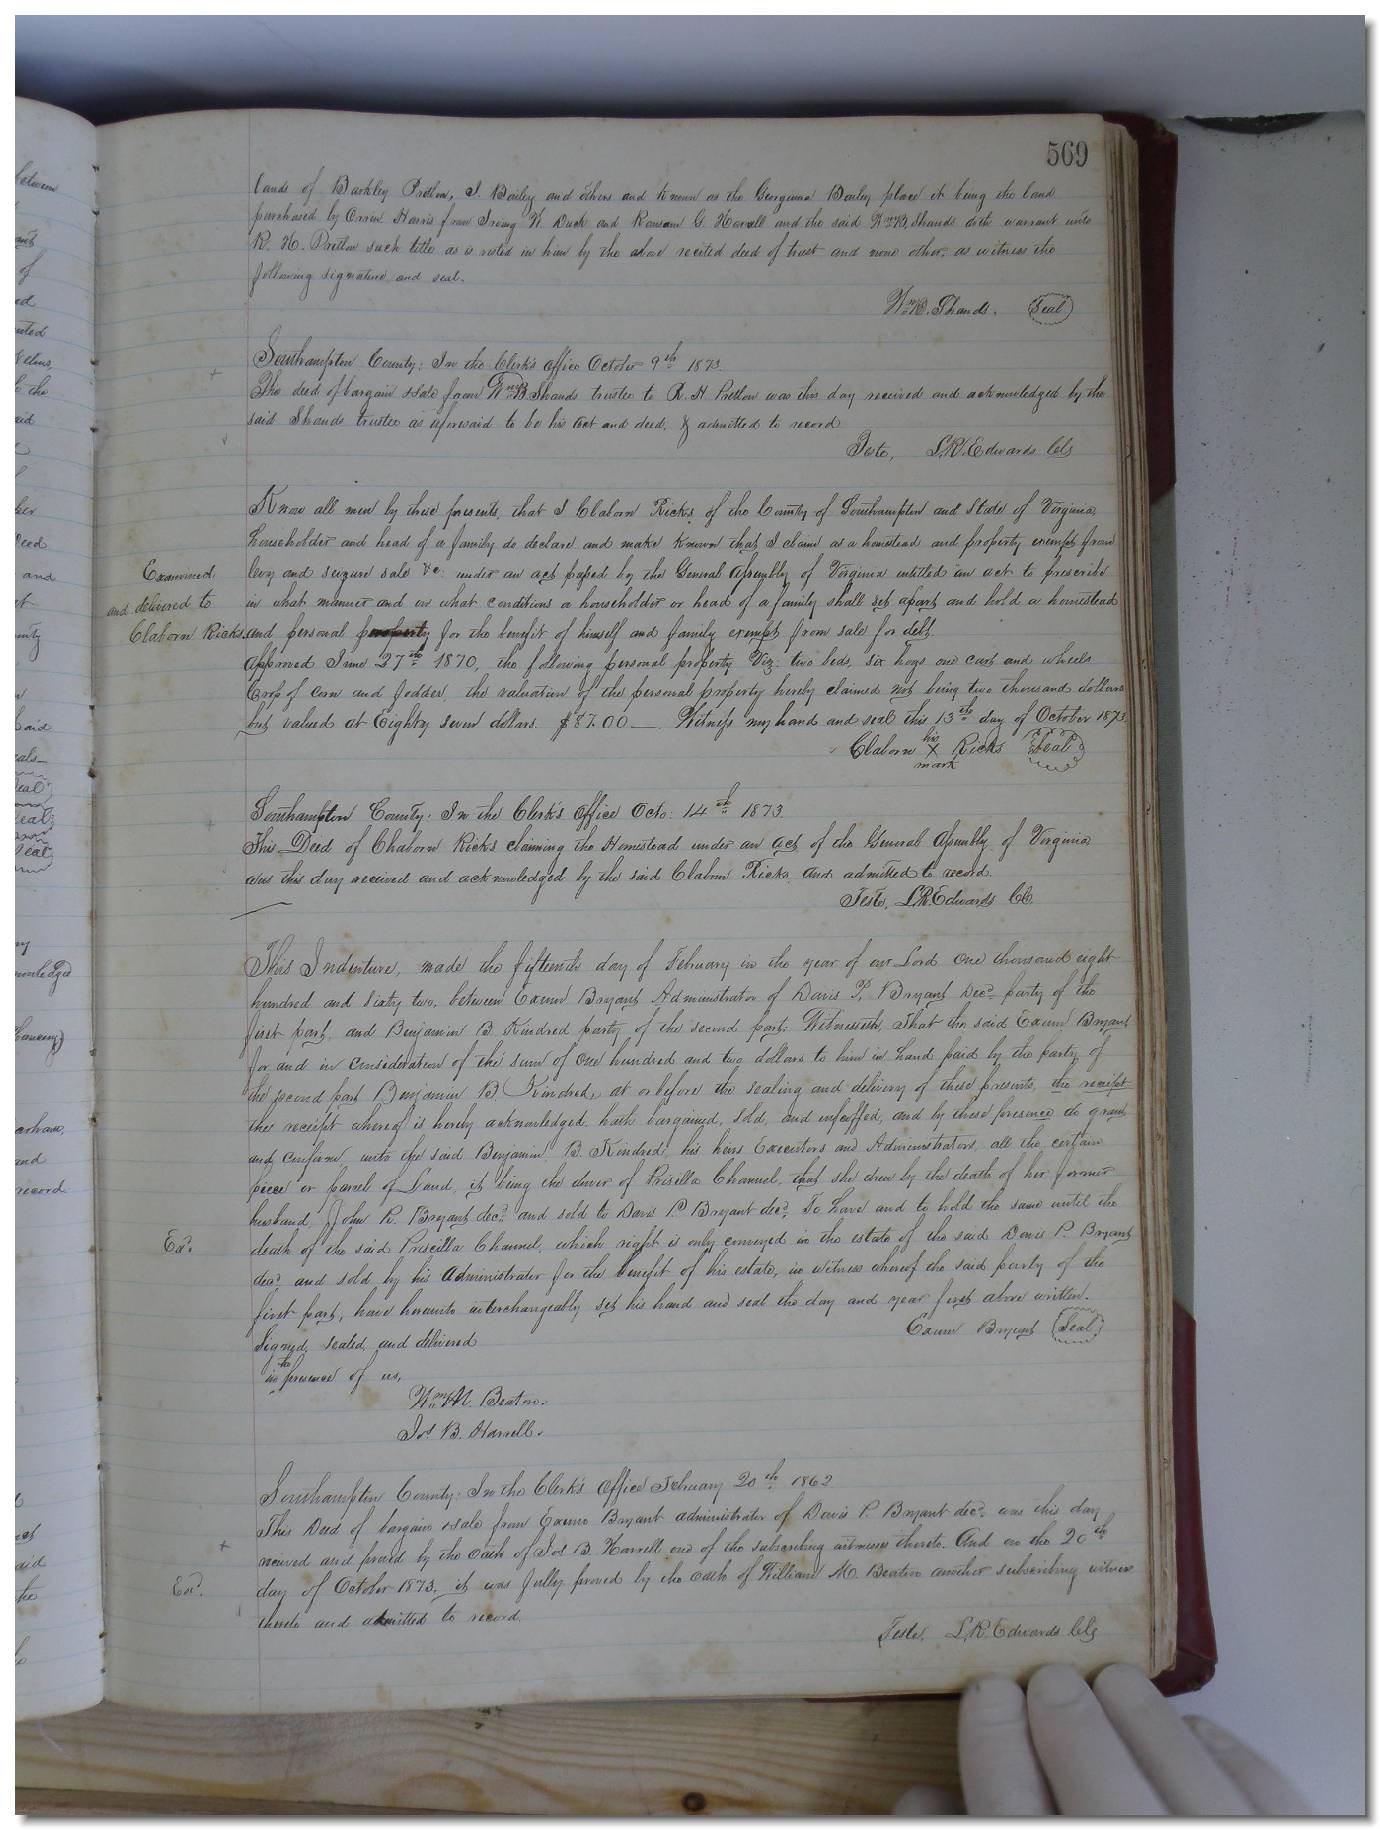 569
lands of Barkley Pretlow, J. Bailey and others and known as the Georgianna Bailey place it being the land
purchased by Orren Harris from Irvay W. Duck and Ransom G. Harrell and the said Wm B. Shands doth warrant unto
R. H. Pretlow such title as is vested in him by the above recited deed of trust and none other, as witness the
following signature and seal.
Wm B. Shands. Seal
Southampton County: In the Clerk's office October 9th 1873.
The deed of bargain & sale from Wm B. Shands trustee to R. H. Pretlow was this day received and acknowledged by the
said Shands trustee as aforesaid to be his act and deed, & admitted to record
Teste, L. R. Edwards Clg
Know all men by these presents, that I Claborn Ricks of the County of Southampton and State of Virginia
householder and head of a family do declare and make known that I claim as a homestead and property exempt from
Examined levy and seizure sale &c. under an act passed by the General Assembly of Virginia entitled an act to prescribe
and delivered to in what manner and on what conditions a householder or head of a family shall set apart and hold a homestead
Claborn Ricks and personal property for the benefit of himself and family exempt from sale for debt
approved June 27th 1870, the following personal property Viz: two beds, six hogs one cart and wheels
Crop of corn and fodder, the valuation of the personal property hereby claimed not being two thousand dollars
but valued at Eighty seven dollars. $87.00 — Witness my hand and seal this 13th day of October 1873
Claborn his X mark Ricks Seal
Southampton County: In the Clerk's Office Octo: 14th 1873.
This Deed of Chaborn Ricks claiming the Homestead under an act of the General Assembly of Virginia
was this day received and acknowledged by the said Claborn Ricks and admitted to record.
Teste, L. R. Edwards Clk.
This Indenture, made the fifteenth day of February in the year of our Lord One thousand eight
hundred and Sixty two, between Exum Bryant Administrator of Davis P. Bryant Decd. party of the
first part, and Benjamin B. Kindred party of the second part: Witnesseth, That the said Exum Bryant
for and in consideration of the sum of One hundred and two dollars to him in hand paid by the party of
the second part Benjamin B. Kindred, at or before the sealing and delivery of these presents, the receipt
the receipt whereof is hereby acknowledged, hath bargained, sold, and enfeoffed, and by these presence do grant
and confirm, unto the said Benjamin B. Kindred, his heirs Executors and Administrators, all the certain
piece or parcel of Land, it being the dower of Priscilla Channel, that she drew by the death of her former
husband John R. Bryant decd. and sold to Davis P. Bryant decd. To have and to hold the same until the
Exd. death of the said Priscilla Channel, which right is only conveyed in the estate of the said Davis P. Bryant
decd. and sold by his Administrator for the benefit of his estate, in witness whereof the said party of the
first part, have hereunto interchangeably set his hand and seal the day and year first above written.
Exum Bryant Seal
Signed, sealed, and delivered
in the presence of us,
Wm M. Beaton.
Jos B. Harrell.
Southampton County: In the Clerk's Office February 20th 1862
This Deed of bargain & sale from Exum Bryant administrator of Davis P. Bryant decd. was this day
received and proved by the oath of Jos B. Harrell one of the subscribing witnesses thereto. And on the 20th
Exd. day of October 1873, it was fully proved by the oath of William M. Beaton another subscribing witness
thereto and admitted to record.
Teste. L. R. Edwards Clg